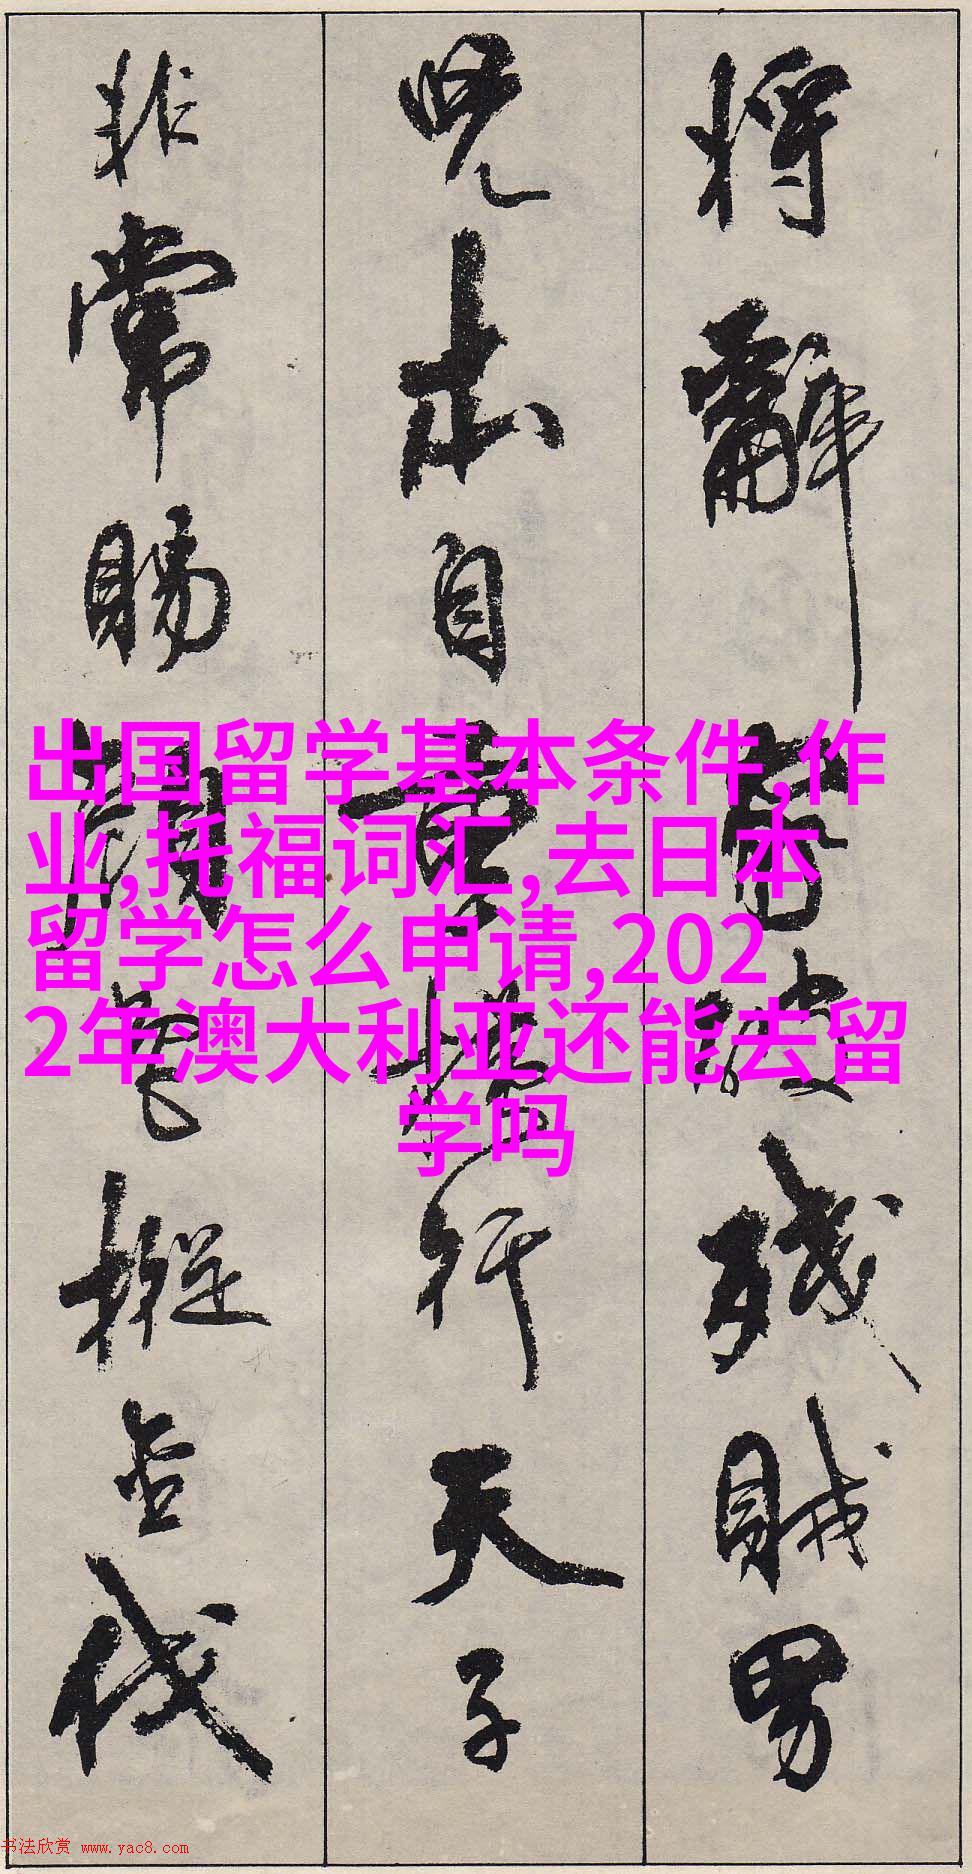 将辭残賊男
出自行天子
非常賜伐
出国留学基本条件,作
业,托福词汇,去日本
留学怎么申请,202
2年澳大利亚还能去留
学吗
书法欣赏 www.yac8.com